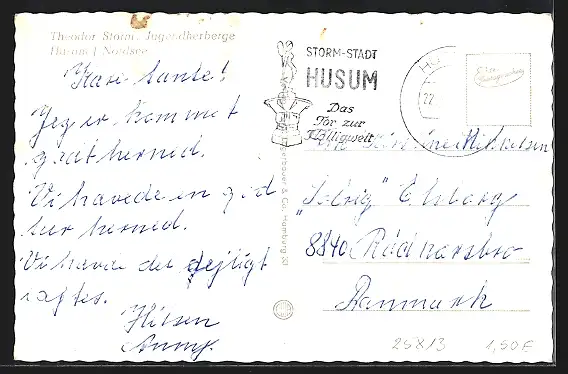 Theodor Storm - Jugendherberge
Husum | Nordsee
Kære tante!
Jeg er kommet
godt herned.
Vi havede en god
tur herned.
Vi havde det dejligt
i aftes.
Hilsen
Anny.
STORM-STADT
HUSUM
Das
Tor zur
Halligwelt
& Co. Hamburg
Mikkelsen
"Solvig" Elsborg
8840 Rödkærsbro
Danmark
258/3
1,50 E